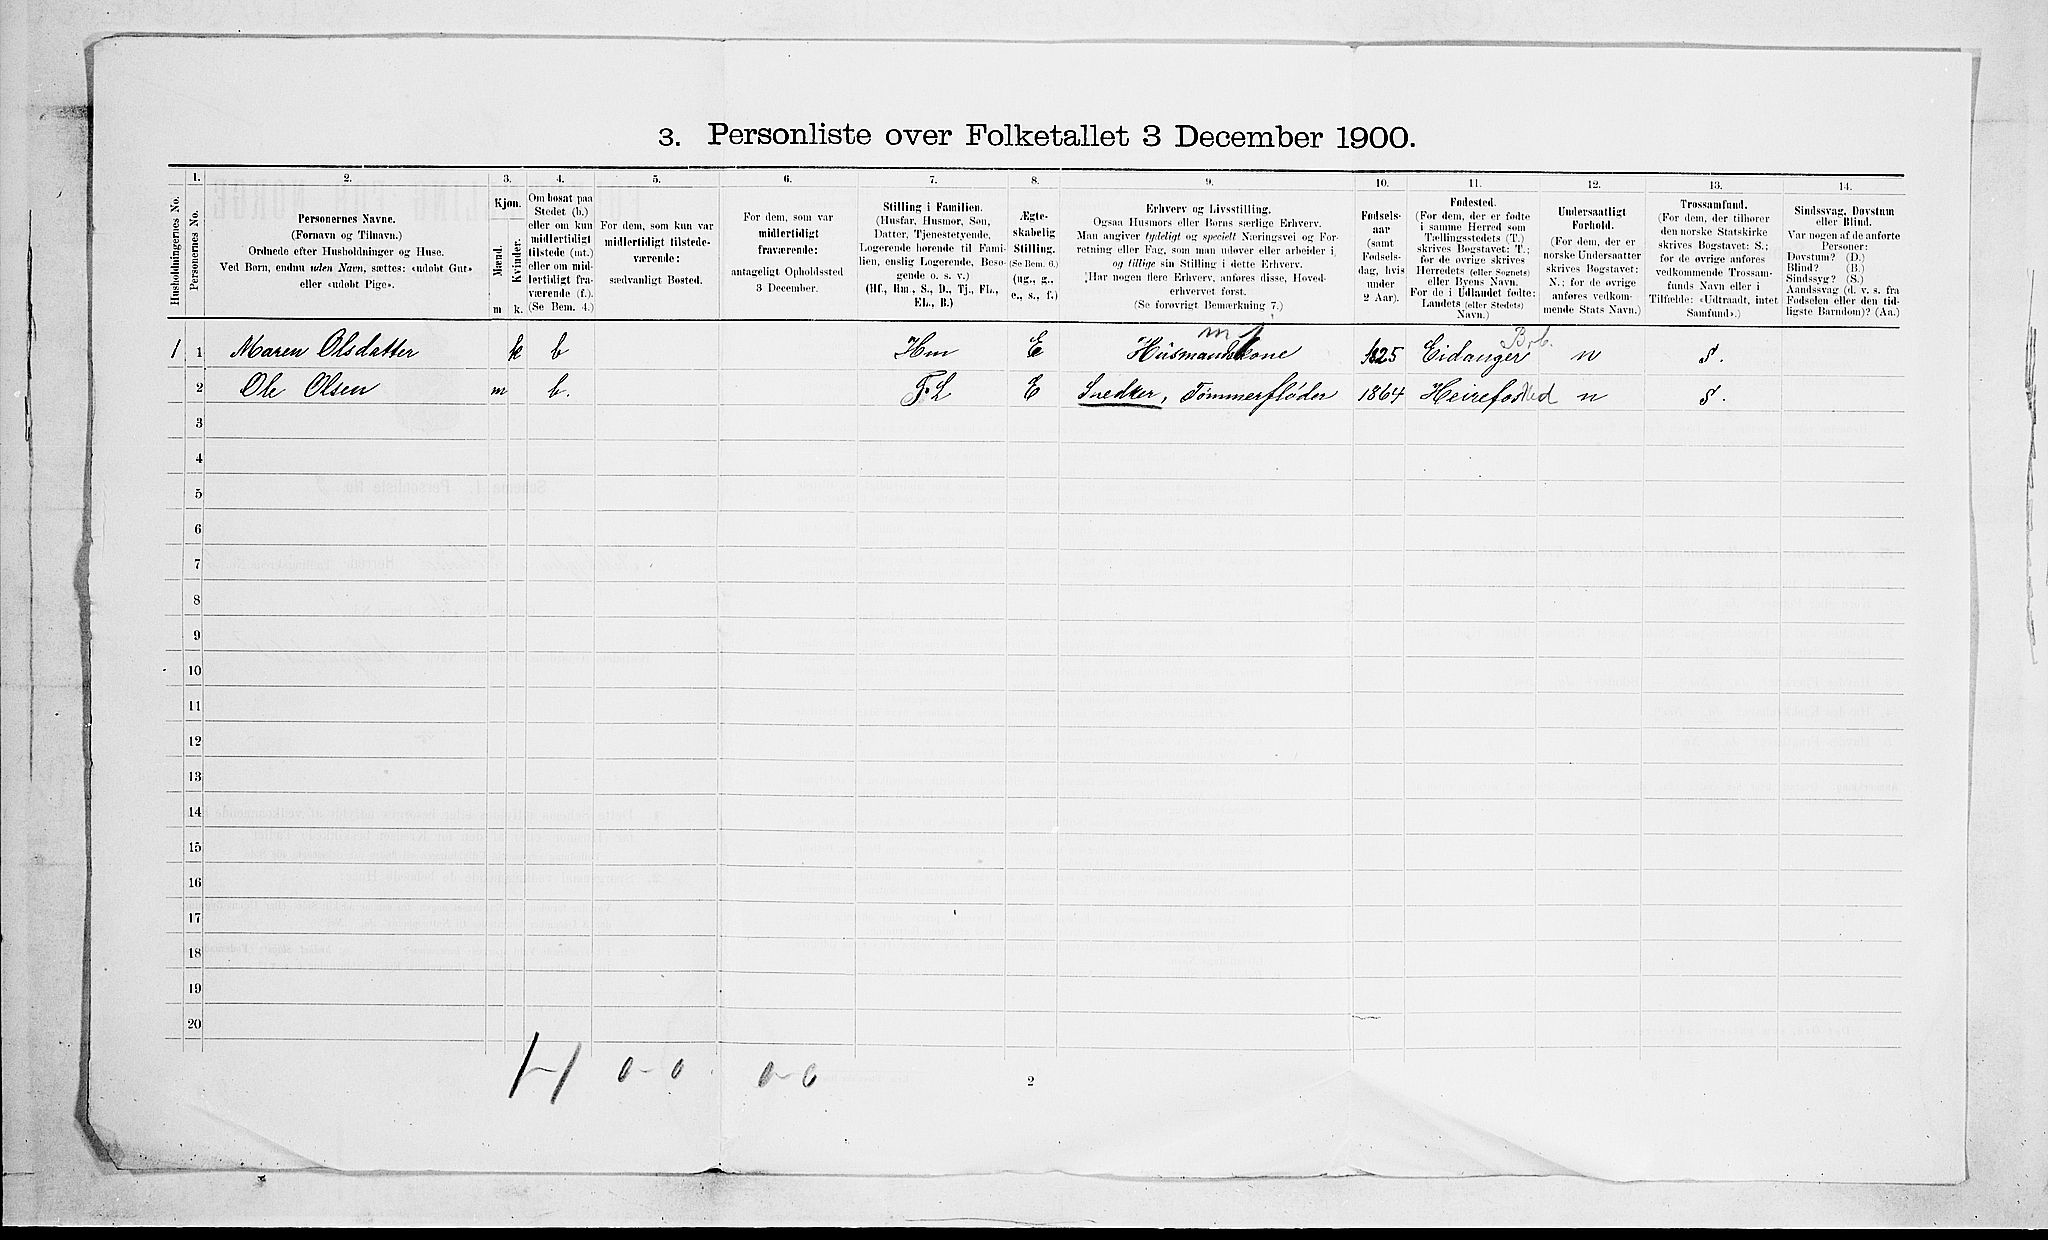 3. Personliste over Folketallet 3 December 1900.
1. 2. 3. 4. 5. 6. 7. 8. 9. 10. 11. 12. 13. 14.
Husholdningernes No.
Personernes No.
Personernes Navne.
(Fornavn og Tilnavn.)
Ordnede efter Husholdninger og Huse.
Ved Børn, endnu uden Navn, sættes: «udøbt Gut»
eller «udøbt Pige».
Kjøn.
Mænd.
Kvinder.
m k.
Om bosat paa
Stedet (b.)
eller om kun
midlertidigt
tilstede (mt.)
eller om mid-
lertidigt fra-
værende (f.).
(Se Bem. 4.)
For dem, som kun var
midlertidigt tilstede-
værende:
sædvanligt Bosted.
For dem, som var
midlertidigt
fraværende:
antageligt Opholdssted
3 December.
Stilling i Familien.
(Husfar, Husmor, Søn,
Datter, Tjenestetyende,
Logerende hørende til Fami-
lien, enslig Logerende, Besø-
gende o. s. v.)
(Hf., Hm., S., D., Tj., FL.,
EL., B.)
Ægte-
skabelig
Stilling.
(Se Bem. 6.)
(ug., g.,
e., s., f.)
Erhverv og Livsstilling.
Ogsaa Husmors eller Børns særlige Erhverv.
Man angiver tydeligt og specielt Næringsvei og For-
retning eller Fag, som man udøver eller arbeider i,
og tillige sin Stilling i dette Erhverv.
(Har nogen flere Erhverv, anføres disse, Hoved-
erhvervet først.
(Se forøvrigt Bemærkning 7.)
Fødsels-
aar
(samt
Fødsels-
dag, hvis
under
2 Aar).
Fødested.
(For dem, der er fødte
i samme Herred som
Tællingsstedets (T.)
skrives Bogstavet: T.;
for de øvrige skrives
Herredets (eller Sognets)
eller Byens Navn.
For de i Udlandet fødte:
Landets (eller Stedets)
Navn.)
Undersaatligt
Forhold.
(For dem, der er
norske Undersaatter
skrives Bogstavet:
N.; for de øvrige
anføres vedkom-
mende Stats Navn.)
Trossamfund.
(For dem, der tilhører
den norske Statskirke
skrives Bogstavet: S.;
for de øvrige anføres
vedkommende Trossam-
funds Navn eller i
Tilfælde: «Udtraadt, intet
Samfund».)
Sindssvag, Døvstum
eller Blind.
Var nogen af de anførte
Personer:
Døvstum? (D.)
Blind? (B.)
Sindssyg? (S.)
Aandssvag (d. v. s. fra
Fødselen eller den tid-
ligste Barndom)? (Aa.)
m Brb.
1 1 Maren Olsdatter k b Hm E Husmandskone 1825 Eidanger n S.
2 Ole Olsen m b. FL E Snedker, Tømmerfløder 1864 n S.
3
4
5
6
7
8
9
10
11
12
13
14
15
16
17
18
19
20
1-1 0-0 0-0
2